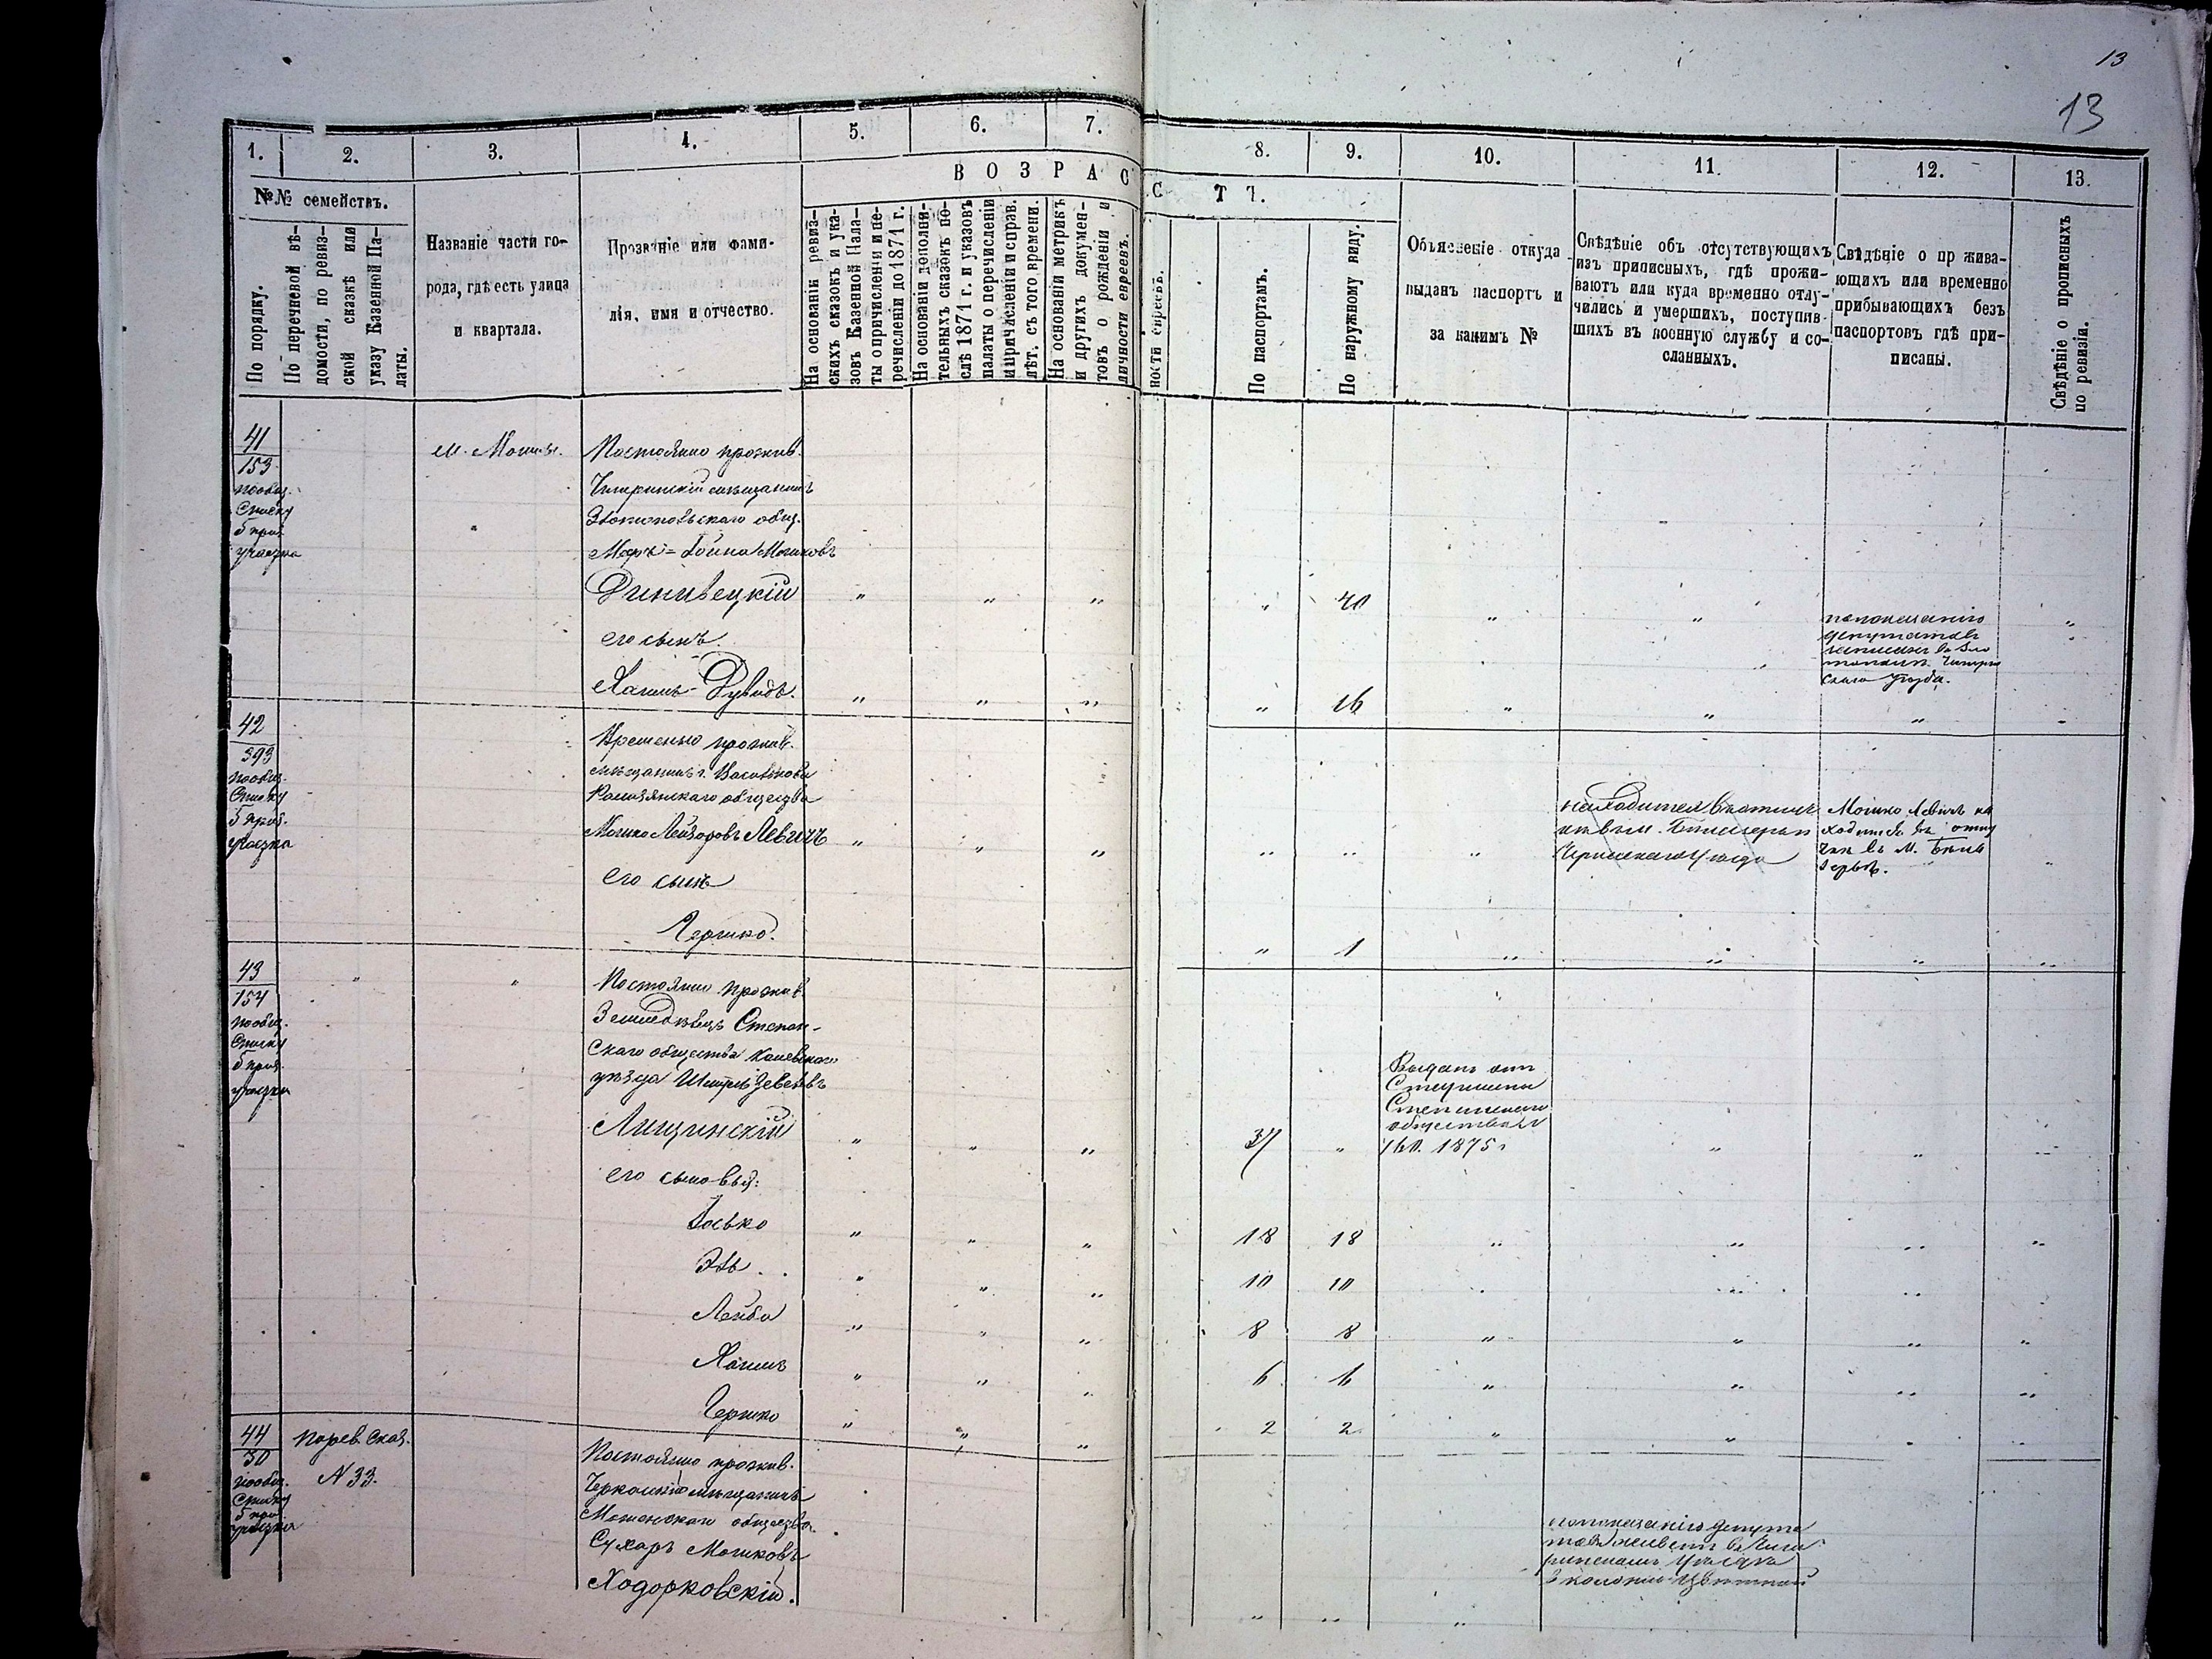 13
13
1. 2. 3. 4. 5. 6. 7. 8. 9. 10. 11. 12. 13.
№№ семействъ.
По порядку.
По перечневой вѣ-
домости, по ревиз-
ской сказкѣ или
указу Казенной Па-
латы.
Названіе части го-
рода, гдѣ есть улица
и квартала.
Прозваніе или фами-
лія, имя и отчество.
ВОЗРАС
С Т Ъ.
На основаніи ревиз-
скихъ сказокъ и ука-
зовъ Казенной Пала-
ты о причисленіи и пе-
речисленіи до 1871 г.
На основаніи дополни-
тельныхъ сказокъ по-
слѣ 1871 г. и указовъ
палаты о перечисленіи
и причисленіи и справ.
лѣт. съ того времени.
На основаніи метрикъ
и другихъ докумен-
товъ о рожденіи и
личности евреевъ.
ности евреевъ.
По паспортамъ.
По наружному виду.
Объясненіе откуда
выданъ паспортъ и
за какимъ №
Свѣдѣніе объ отсутствующихъ
изъ приписныхъ, гдѣ прожи-
ваютъ или куда временно отлу-
чились и умершихъ, поступив-
шихъ въ военную службу и со-
сланныхъ.
Свѣдѣніе о пр жива-
ющихъ или временно
прибывающихъ безъ
паспортовъ гдѣ при-
писаны.
Свѣдѣніе о прописныхъ
по ревизіи.
41
153
по общ.
Списку
5 приз.
участка
м. Мошны.
Постоянно прожив.
Чигиринскій мѣщанинъ
Златопольскаго общ.
Мошковъ
Финивецкій " " " " 40 " " "
его сынъ.
Хаимъ-Дувидъ. " " " " 16 " " " "
по показанію
депутатовъ
записанъ въ Зла
тополѣ Чигирин
скаго уѣзда.
42
393
по общ.
Списку
5 приз.
участка
Временно прожив.
мѣщанинъ г. Василькова
общества
Мошко Лейзоровъ Левитъ " " " " " "
находится въ отлуч
кѣ въ м.
уѣзда
Мошко Левитъ на
ходится въ отлу
чкѣ въ М. Бѣло
зерьѣ. "
его сынъ
Гершко. " 1 " " " "
43
154
по общ.
Списку
5 приз.
участка
" "
Постоянно прожив.
Земледѣлецъ Степан-
скаго общества Каневскаго
уѣзда
Лищинскій " " " 37 " " " "
Выданъ отъ
Старшины
Степанскаго
общества за №
160. 1875 г.
его сыновья:
Іосько " " " 18 18 " " " "
Эль " " " 10 10 " " "
Лейба " " " 8 8 " " " "
Хаимъ " " " 6 6 " " " "
Гершко " " " 2 2 " " " "
44
30
по общ.
Списку
5 приз.
участка
по рев. сказ.
N 33.
Постоянно прожив.
Черкаскій мѣщанинъ
Мошенскаго общества
Сухаръ Мошковъ
Ходорковскій. " " "
по показанію депута
товъ живетъ въ Чиги
ринскомъ уѣздѣ
въ колоніи